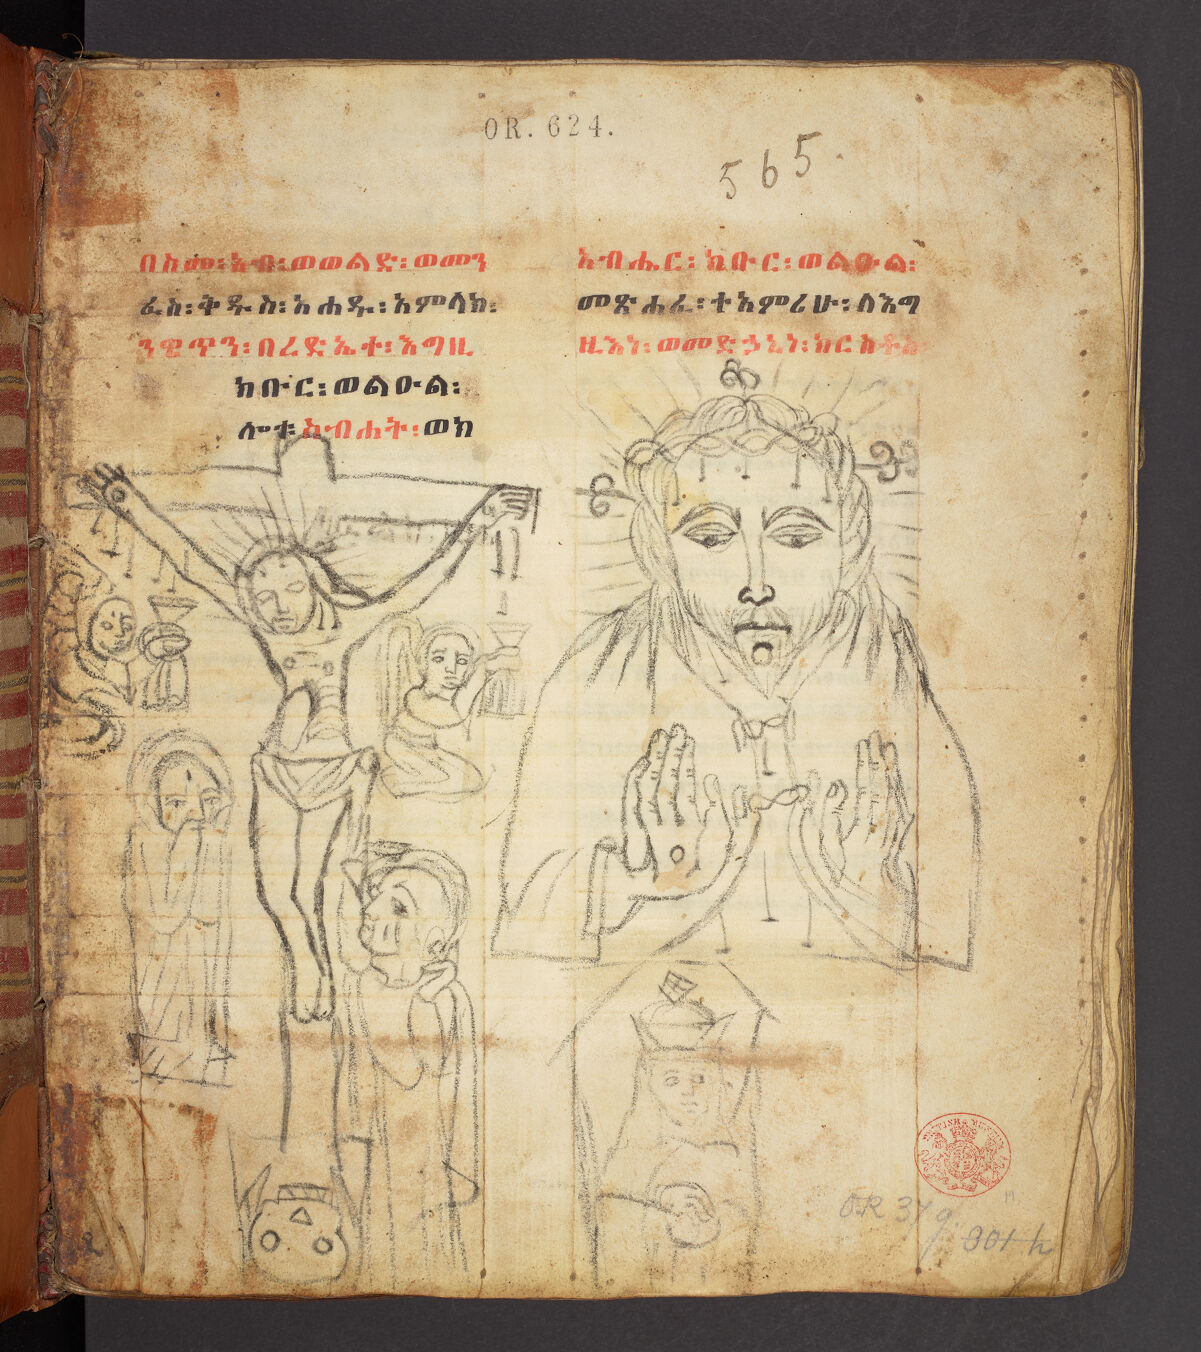 OR. 624.
565
በስመ፡ አብ፡ ወወልድ፡ ወመን
ፈስ፡ ቅዱስ፡ አሐዱ፡ አምላክ፡
ንዌጥን፡ በረድኤተ፡ እግዚ
ክቡር፡ ወልዑል፡
ሎቱ፡ ስብሐት፡ ወክ
አብሔር፡ ክቡር፡ ወልዑል፡
መጽሐፈ፡ ተአምሪሁ፡ ለእግ
ዚእነ፡ ወመድኃኒነ፡ ክርስቶስ፡
OR